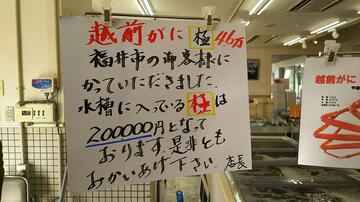 越前がに 極 46万
福井市の御客様に
かっていただきました。
水槽に入っている極は
200000円となって
おります。是非とも
おかいあげ下さい。店長
越前がに